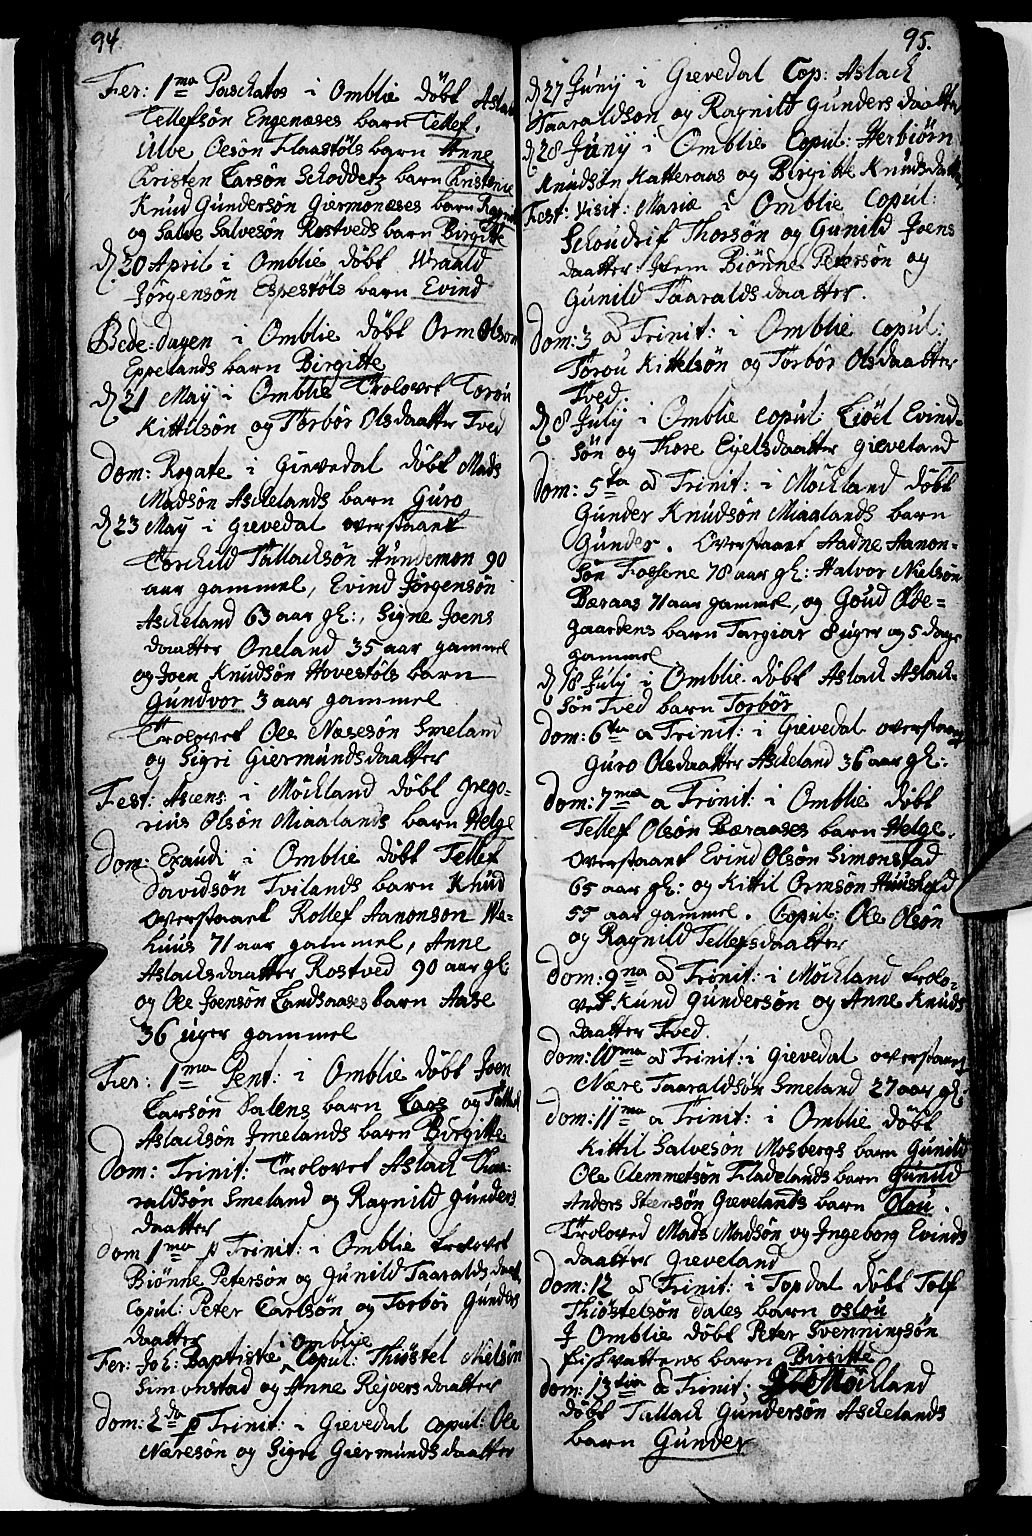 94
Fer: 1ma Paschatos i Omblie döbt Aslac
Tellefsön Engenæses barn Tellef.
Ulve Olsön Flaastöls barn Anne
Cristen Larsön Schoddetz barn Cristenie
Knud Gundersön Giermonæses barn
og Salve Salveson Rostveds barn Birgitte
d 20 April i Omblie döbt Wraald
Jörgensön Espestöls barn Evind
Bede-dagen i Omblie döbt Orm Olsön
Eppelands barn Birgitte
d 21 May i Omblie Trolovet Torou
Kittilsön og Torbör Olsdaatter Tved
Dom: Rogate i Gievedal döbt Mads
Madsön Aschelands barn Guro
d 23 May i Gievedal overstaaet
Torchild Tallachsön Hundemon 90
aar gammel, Evind Jörgensön
Ascheland 63 aar gl:, Signe Joens
daatter Oneland 35 aar gammel
og Joen Knudsön Hovestöls barn
Gundvor 3 aar gammel
Trolovet Ole Næresön Smeland
og Sigri Giermundsdaatter
Fest: Ascens: i Möchland döbt Grego-
rius Olsön Miaalands barn Helge
Dom: Exaudi i Omblie döbt Tellef
Davidsön Tvilands barn Knud
overstaaet Rollef Aanonson Ne-
huus 71 aar gammel, Anne
Aslachsdaatter Rostved 90 aar gl:
og Ole Joensön Landsaases barn Aase
36 uger gammel
Fer: 1ma Pent: i Omblie döbt Joen
Larsön Dalens barn Lars og
Aslachsön Jmelands barn Birgitte
Dom: Trinit: Trolovet Aslach Taa-
raldsön Smeland og Ragnild Gunders
daatter
Dom 1ma p Trinit: i Omblie trolovet
Biönne Petersön og Gunild Taaralds daat
Copul: Peter Carlsön og Torbör Gunders
daatter
Fer: Joh: Baptistæ i Omblie Copul: Thiöstel Nielsön
Simonstad og Anne Rejersdaatter
Dom: 2da p Trinit: i Gievedal copul: Ole
Næresön og Sigri Giermundsdaatter
95.
d 27 Juny i Gievedal Cop: Aslach
Taaraldson og Ragnild Gundersdaatter
d 28 Juny i Omblie Copul: Herbiörn
Knudsön Katteraas og Birgitte Knudsdatt
Fest: Visit: Mariæ i Omblie Copul:
Schoudrif Thorsön og Gunild Joens
daatter. Item Biönne Petersön og
Gunild Taaraldsdaatter.
Dom: 3 a Trinit: i Omblie copul:
Torou Kittelsön og Torbör Olsdaatter
Tved.
d 8 July i Omblie copul: Liöel Evind-
sön og Thore Eyelsdaatter Gieveland
Dom: 5ta a Trinit: i Möchland döbt
Gunder Knudsön Miaalands barn
Gunder. Overstaaet Aadne Aanon-
sön Fossene 78 aar gl: Halvor Nielsön
Bæraas 71 aar gammel, og Goud Öde-
gaardens barn Targiær 8 uger og 5 dage
gammel
d 18 July i Omblie döbt Aslach Aslach-
sön Tved barn Torbör
Dom: 6ta a Trinit: i Gievedal overstaaet
Guro Olsdaatter Ascheland 36 aar gl:
Dom: 7ma a Trinit: i Omblie döbt
Tellef Olsön Bæraases barn Helge.
overstaaet Evind Olsön Simonstad
65 aar gl: og Kittil Ormsön
55 aar gammel. Copul: Ole Olsön
og Ragnild Tellefsdaatter
Dom: 9na a Trinit: i Möchland trolo-
vet Kund Gundersön og Anne Knuds
daatter Tved.
Dom: 10ma a Trinit: i Gievedal overstaaet
Nære Taaraldsön Smeland 27 aar gl:
Dom: 11ma a Trinit: i Omblie döbt
Kittil Salvesön Mosbergs barn Gunild
Ole Clemmetsön Fladelands barn Gunild
Anders Steensön Grevelands barn Olou.
Troloved Mads Madsön og Ingeborg Evinds
daatter Gieveland
Dom: 12 a Trinit: i Topdal döbt Tolf
Thiöstelsön Dales barn Oslou
I Omblie döbt Peter Svenningsön
Fischvattens barn Birgitte
Dom: 13tia a Trinit: Möchland
döbt Tallach Gundersön Aschelands
barn Gunder